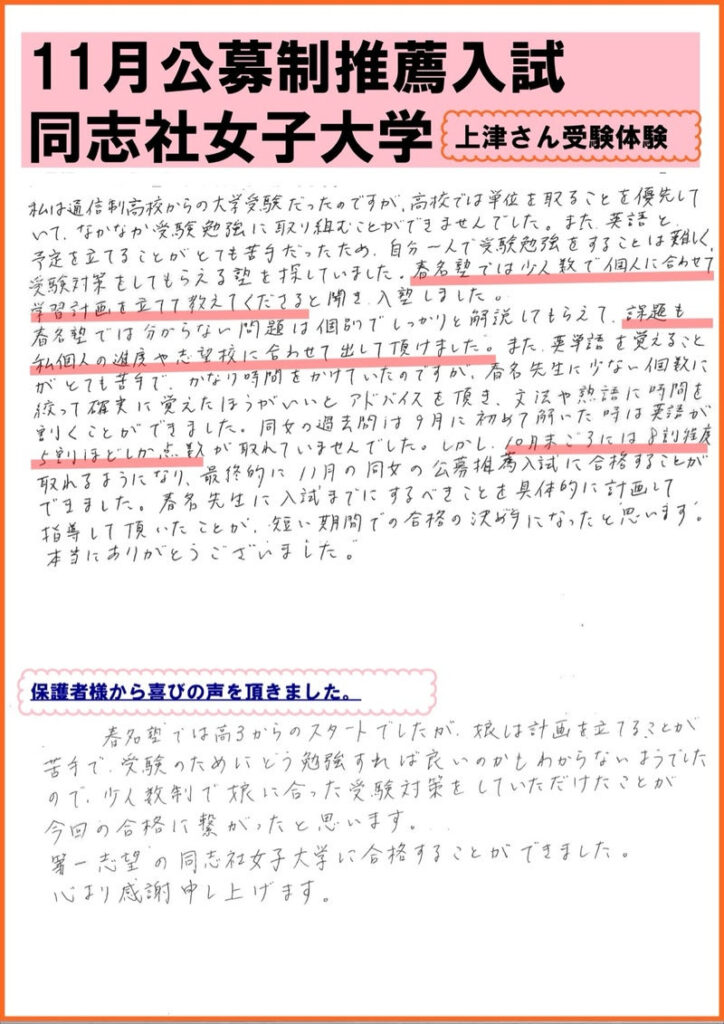 11月公募制推薦入試
同志社女子大学
上津さん受験体験
私は通信制高校からの大学受験だったのですが、高校では単位を取ることを優先して
いて、なかなか受験勉強に取り組むことができませんでした。また、英語と、
予定を立てることがとても苦手だったため、自分一人で受験勉強をすることは難しく、
受験対策をしてもらえる塾を探していました。春名塾では少人数で個人に合わせて
学習計画を立てて教えてくださると聞き、入塾しました。
春名塾では分からない問題は個別でしっかりと解説してもらえて、課題も
私個人の進度や志望校に合わせて出して頂けました。また、英単語を覚えること
がとても苦手で、かなり時間をかけていたのですが、春名先生に少ない個数に
絞って確実に覚えたほうがいいとアドバイスを頂き、文法や熟語に時間を
割くことができました。同女の過去問は9月に初めて解いた時は英語が
5割ほどしか点数が取れていませんでした。しかし、10月末ごろには8割程度
取れるようになり、最終的に11月の同女の公募推薦入試に合格することが
できました。春名先生に入試までにするべきことを具体的に計画して
指導して頂いたことが、短い期間での合格の決め手になったと思います。
本当にありがとうございました。
保護者様から喜びの声を頂きました。
春名塾では高3からのスタートでしたが、娘は計画を立てることが
苦手で、受験のためにどう勉強すれば良いのかもわからないようでした
ので、少人数制で娘に合った受験対策をしていただけたことが
今回の合格に繋がったと思います。
第一志望の同志社女子大学に合格することができました。
心より感謝申し上げます。